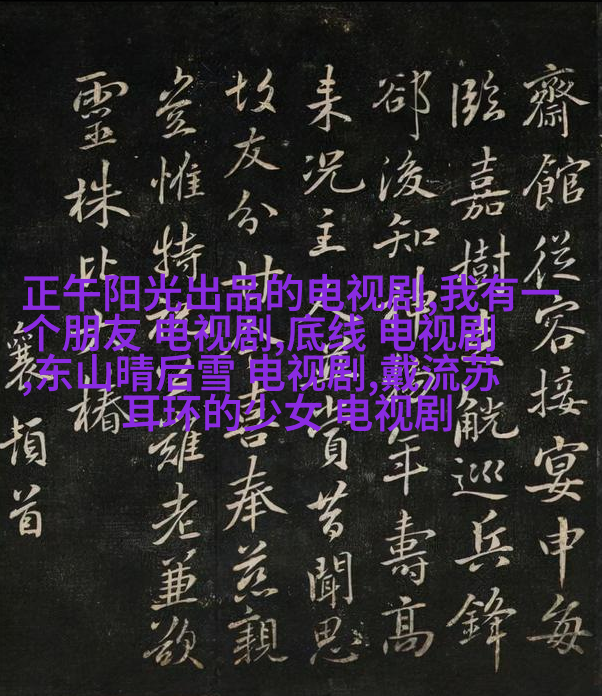 正午阳光出品的电视剧,我有一
个朋友 电视剧,底线 电视剧
,东山晴后雪 电视剧,戴流苏
耳环的少女 电视剧
齋館從容接宴申每
臨嘉樹觥巡兵鋒
郤後知神物年壽高
来況主人賞昔聞思
故友分甘喜奉慈親
豈惟特難老並欲
靈株比大椿
襄頓首